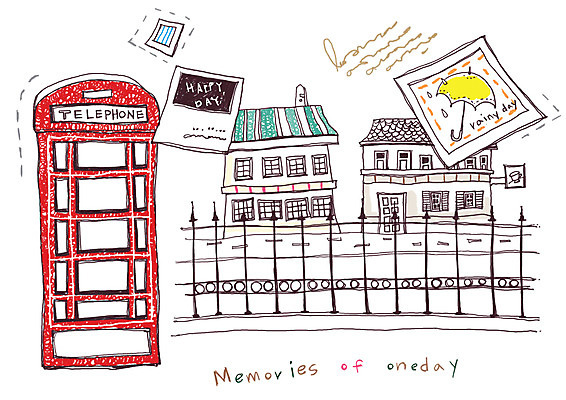 HAPPY
DAY.
TELEPHONE
rainy day
Memories of oneday